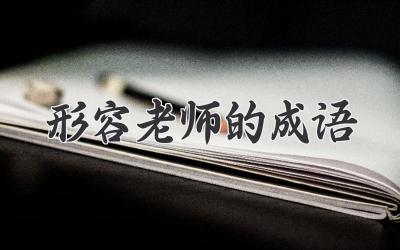 形容老师的成语